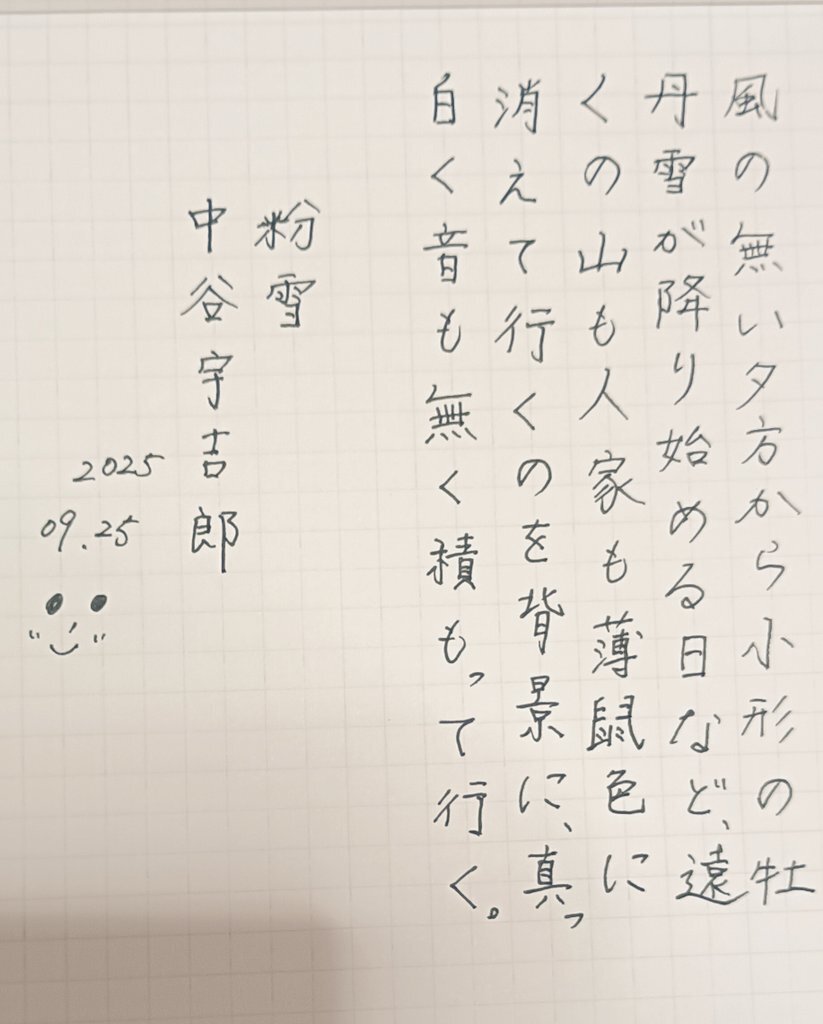 風の無い夕方から小形の牡
丹雪が降り始める日など、遠
くの山も人家も薄鼠色に
消えて行くのを背景に、真っ
白く音も無く積もって行く。
粉雪
中谷宇吉郎
2025
09.25